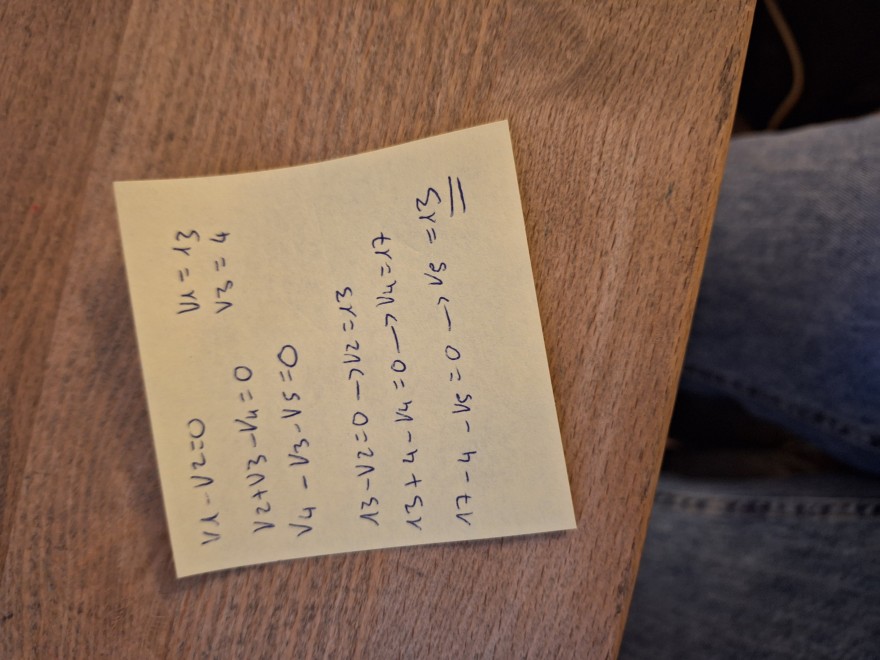 V1-V2=0 V1=13
V2+V3-V4=0 V3=4
V4-V3-V5=0
13-V2=0 → V2=13
13+4-V4=0 → V4=17
17-4-V5=0 → V5=13